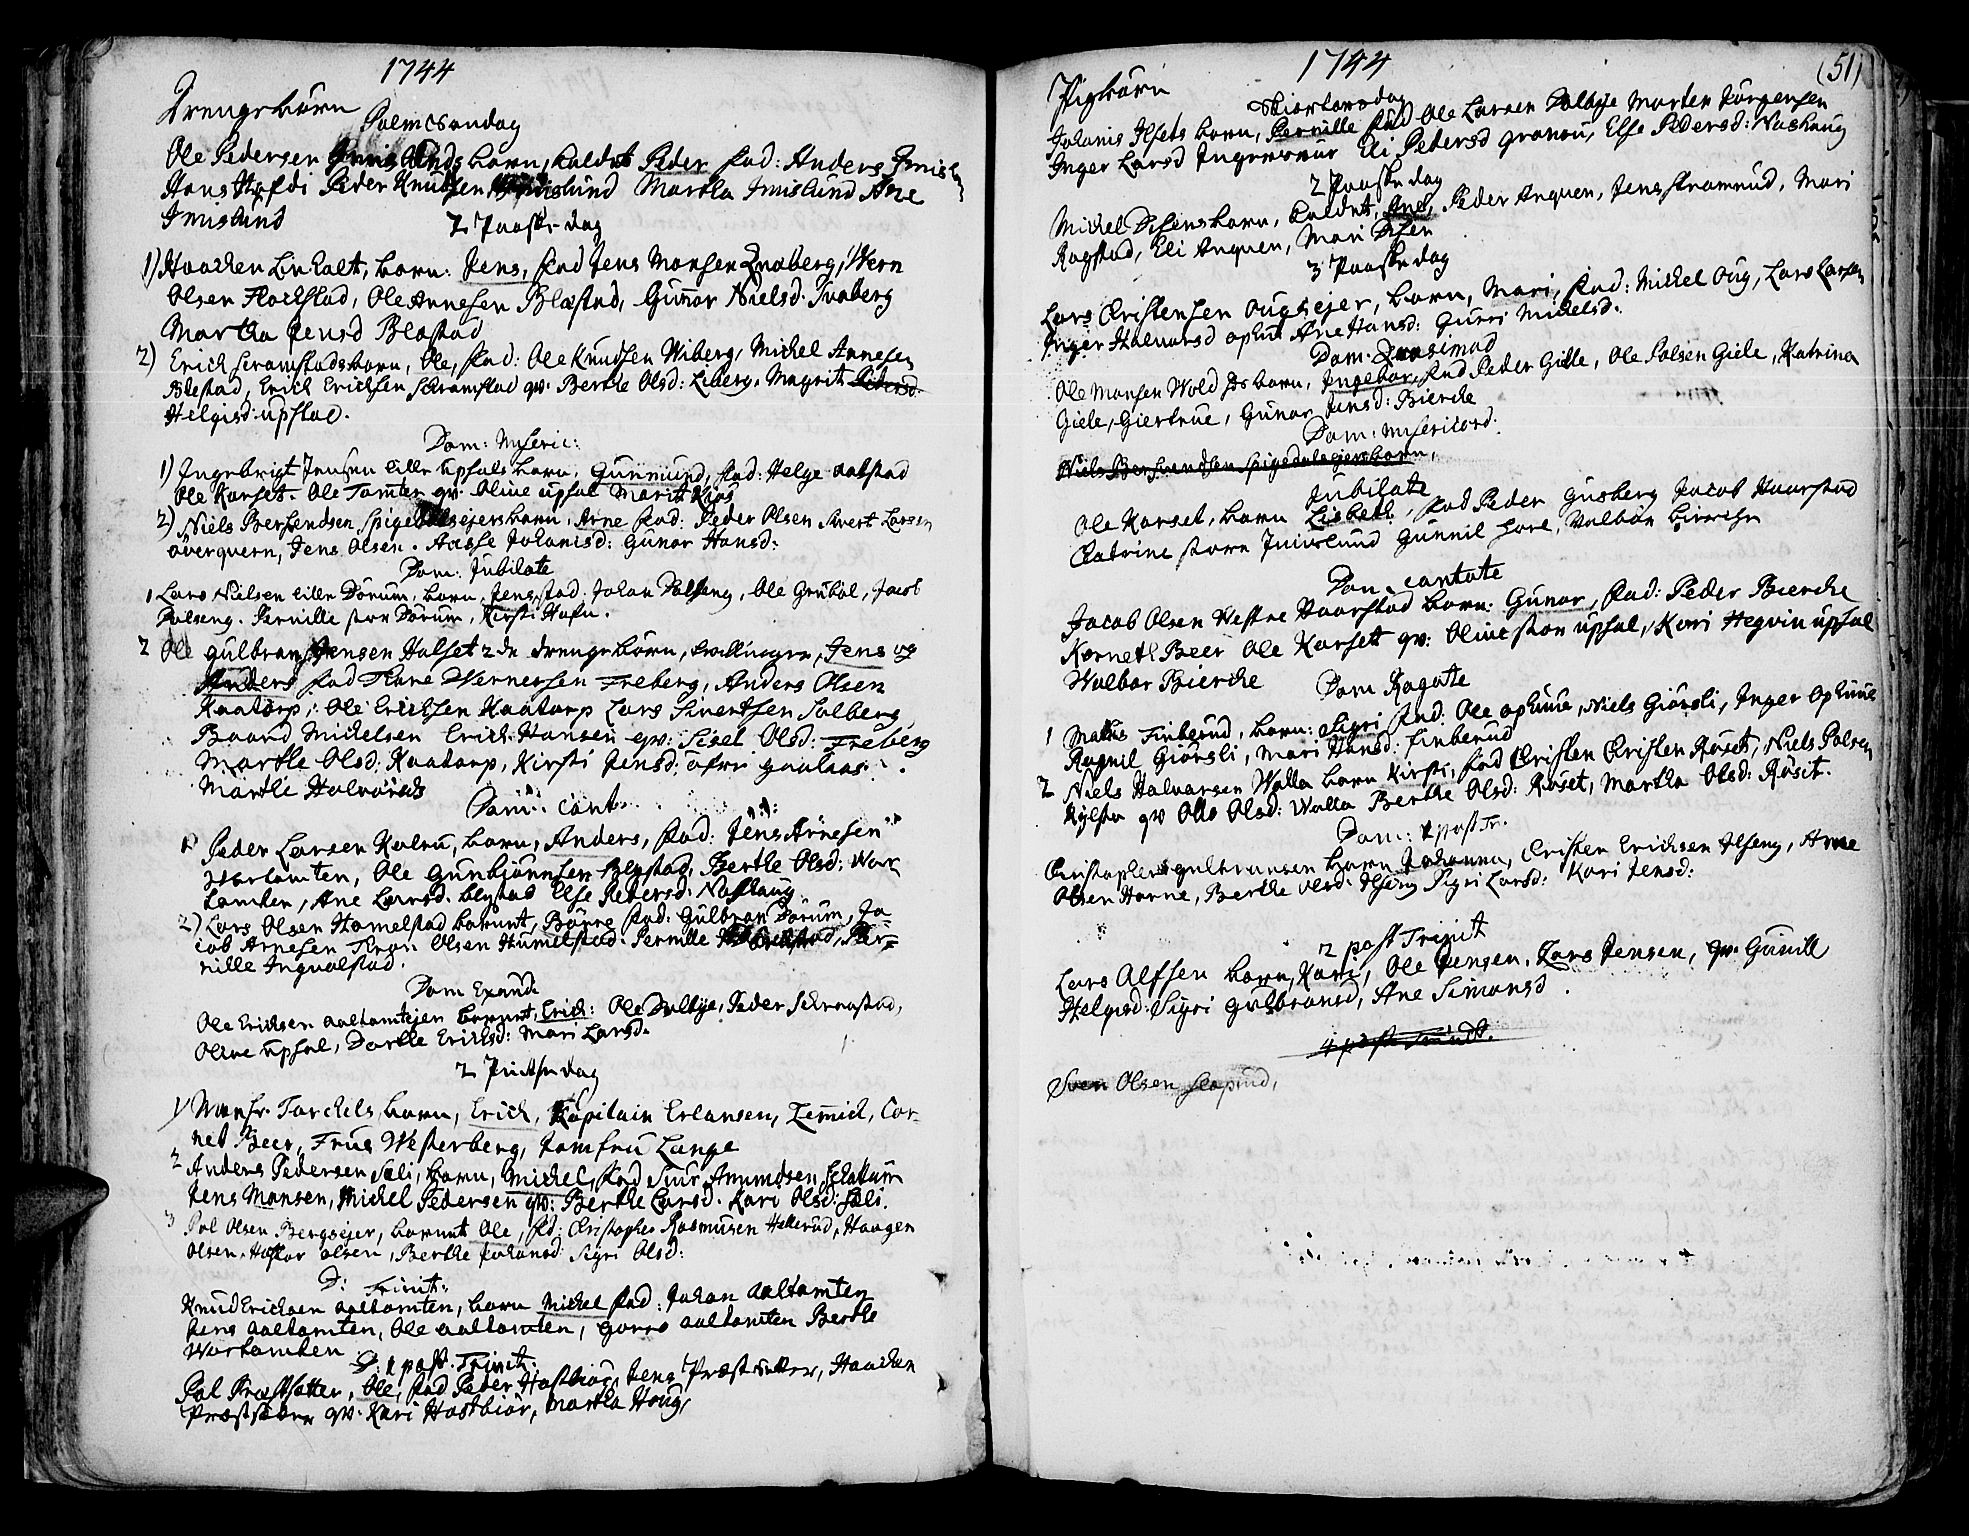 1744
Drengebörn
Palmesondag
Ole Pedersen Imislunds barn, kaldet Peder, fad: Anders Imisl
Hans Peder Knudsen Imislund Martha Imislund Ane
Imislund
2 Paaske dag
1) Haachen Linholt, barn: Jens, fad Jens Monsen Wern
Olsen Flochstad, Ole Arnesen Blæstad, Gunor Nielsd.
Martha Jensd Blæstad
2) Erich Scramstads barn, Ole, fad: Ole Knudsen Wiberg, Michel Arnesen
Blestad, Erich Erichsen Scramstad qv. Berthe Olsd: Liberg, Magrit Pedersd:
Helgisd: upstad.
Dom: Miseric:
1) Ingebrigt Jensen lille upsals barn, Gunmund, fad: Helge aalstad
Ole Korset. Ole Tomter qv. Olive upsal Marit Kios
2) Niels Berssendsen Spigedalsejersbarn, Arne fad: Peder Olsen Sivert Larsen
överquern, Jens Olsen. Aasse Johanisd: Gunor Hansd:
Dom: Jubilate
1 Lars Nielsen lille Dörum, barn, Jens, fad. Johan Dalseng, Ole Grubol, Jacob
Dalseng. Pernille stor Dörum, Kirsti Hafn.
2 Ole Gulbransen Halset 2de drengebörn, tvillinger, Jens og
Anders fad Thore Wernersen Freberg, Anders Olsen
Kaatorp, Ole Erichsen Kaatorp Lars Sivertsen Solberg
Baard Michelsen Erich Hansen qv: Sisel Olsd: Freberg
Marthe Olsd: Kaatorp, Kirsti Jensd: öfre gaalaas
Marthe Halvorsd
Dom: Cant.
1) Peder Larsen Kalru, barn, Anders, fad: Jens Arnesen
Wortomten, Ole Gunbjönnsen Blystad, Berthe Olsd: Wor
tomten, Ane Larsd. blystad Else Pedersd: Nashaug
2) Lars Olsen Homelstad barnet, Börre fad: Gulbran Dörum, Ja
cob Arnesen Tron Olsen Humelstad: Pernille Per=
nille Ingvalstad.
Dom Exaudi
Ole Erichsen aaltomtejen barnet, Erich: Ole Dalbye, Peder Schramstad,
Olive upsal, Dorthe Erichsd: Mari Larsd.
2 Pintse dag
1) Monsr. Torchels, barn, Erich, Kapitain Erlansen, Lemich, Cor-
net Beer, Frue Westerberg, Jomfru Lange
2 Anders Pedersen Sæli, barn, Michel, fad Siur Amundsen Sclattum
Jens Monsen, Michel Pedersen qv: Berthe Larsd. Kari Olsd: Sæli.
3 Pol Olsen Bergsejer, barnet Ole, fad: Christopher Rasmusen Hellerud, Haagen
Olsen, Olsen, Berthe Johansd: Sigri Olsd:
D: Trinit:
Knud Erichsen aaltomten, barn Michel fad: Johan aaltomten
Jens aaltomten, Ole aaltomten, Goro aaltomten Berthe
Wortomten
D: 1 post. Trinit:
Pol Præstsætter, Ole, fad Peder Hostbiör, Jens Præstsætter, Haachen
Præstsætter qv. Kari Hostbiör, Martha Houg,
1744
(51)
Pigebörn
Skiertorsdag
Johanis Ilsets barn, Pernille fad Ole Larsen Dalbye Morten Jörgensen
Inger Larsd Eli Pedersd Else Pedersd: Nashaug
2 Paaske dag
Michel Disens barn, kaldet, Ane, Peder Anquen, Jens Stramrud, Mari
Rogstad, Eli Anquen, Mari Disen
3 Paaske dag
Lars Cristensen Ougsejer, barn, Mari, fad: Michel Oug, Lars Larsen
Inger Halvorsd ophus Ane Hansd: Guri Michelsd:
Dom: Quasimod
Ole Monsen Wold barn, Ingebor, fad Peder Gille, Ole Polsen Giele, Katrina
Giele, Giertrue, Gunor Jensd: Bierche
Dom: Misericord.
Niels Berssendsen spigedalsejersbarn,
Jubilate
Ole Korset, barn Lisbeth, fad Peder Gusberg Jacob Haarstad
Catrine store Imislund Gunnil Wolbor
Dom. Cantate
Jacob Olsen Westre Haarstad barn. Gunor, fad: Peder Bierche
Kornet Beer Ole Korsett qv: Olive stor upsal, Kari Hegvin upsal
Wolbor Bierche
Dom Rogate
1 Mattis Finberud, barn: Sigri fad: Ole ophuus, Niels Giörsli, Inger ophuus
Ragnil Giörsli, Mari Hansd: Finberud
2 Niels Halvorsen Walla barn Kirsti, fad Christen Christen Röset, Niels Polsen
Kylsta qv Olle Olsd: Walla Berthe Olsd: Röset, Martha Olsd: Röset.
Dom: 1 post Tr.
Christopher gulbransen barn Johanna, Cristen Erichsen Ilseng, Arne
Olsen Horne, Berthe Olsd: Ilseng Sigri Larsd: Kari Jensd:
2 post Trinit
Lars Alfsen barn, Kari, Ole Jensen, Lars Jensen, qv. Gunild
Helgisd: Sigri Gulbransd, Ane Simonsd.
4 post Trinit.
Sven Olsen